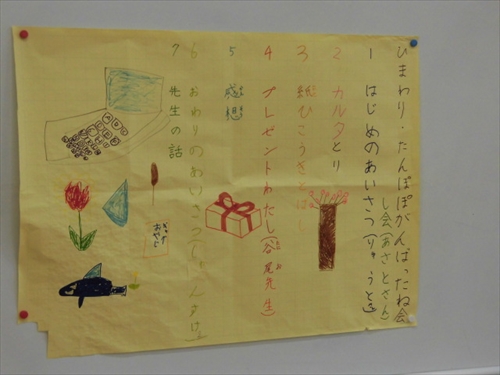 ひまわり・たんぽぽがんばったね会
し会(あさとさん)
1 はじめのあいさつ(りゅうとさん)
2 カルタとり
3 紙ひこうきとばし
4 プレゼントわたし(谷尾先生)
5 感想
6 おわりのあいさつ(しゅんすけ)
7 先生の話